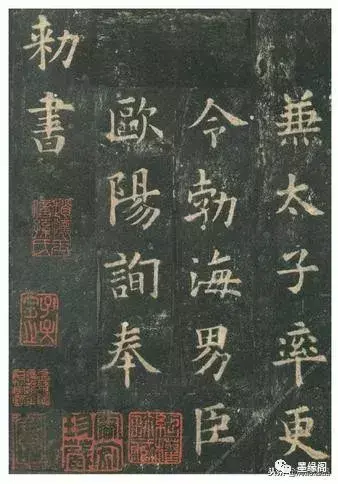 兼太子率更
令勃海男臣
歐陽詢奉
勑書
墨缘阁